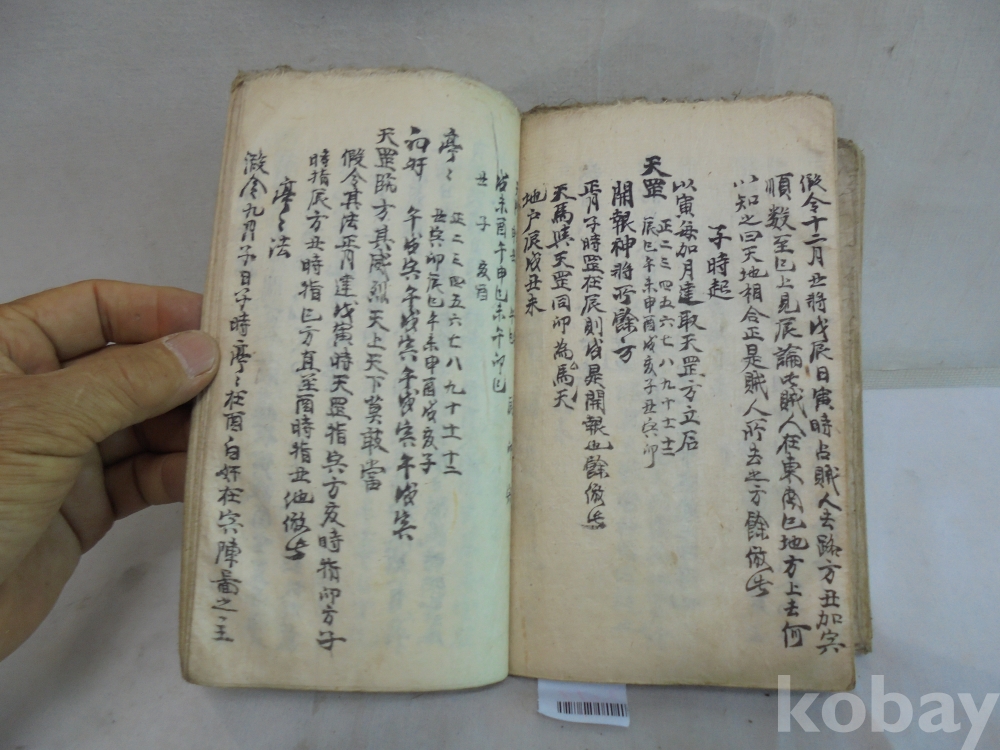 假令十二月丑將戊辰日寅時占賊人去路方丑加寅
順数至巳上見辰論它賊人在東南巳地方上去何
以知之曰天地相合正是賊人所去之方餘倣此
子時起
天罡 正二三四五六七八九十十一十二
辰巳午未申酉戌亥子丑寅卯
以寅每加月建取天罡方立后
開報神將所餘方
正月子時罡在辰則戌是開報也餘倣此
天馬與天罡同卯為馬天
地户辰戌丑未
戌未酉午申巳未午卯巳
丑子亥酉
亭亭 正二三四五六七八九十十一十二
丑寅卯辰巳午未申酉戌亥子
白奸 午戌寅午戌寅午戌寅午戌寅
天罡臨方其威烈天上天下莫敢當
假令其法正月建戌寅時天罡指寅方亥時指卯方子
時指辰方丑時指巳方直至酉時指丑他倣此
亭亭法
假令九月子日子時亭亭在酉白奸在寅陣啚之主
kobay